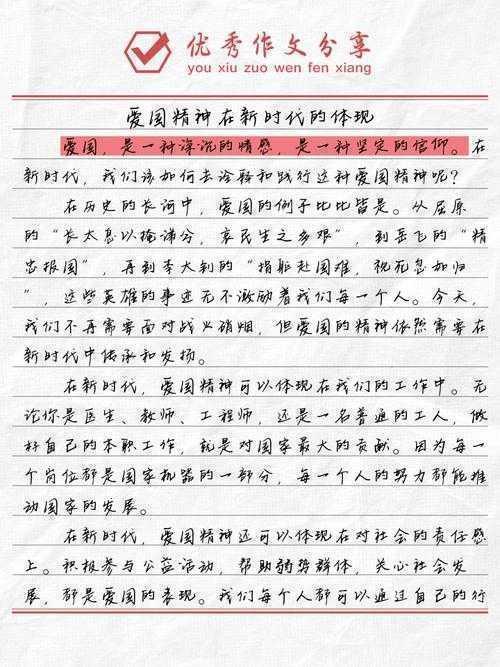 优秀作文分享
you xiu zuo wen fen xiang
爱国精神在新时代的体现
爱国，是一种深沉的情感，是一种坚定的信仰。在
新时代，我们该如何去诠释和践行这种爱国精神呢？
在历史的长河中，爱国的例子比比皆是。从屈原
的“长太息以掩涕兮，哀民生之多艰”，到岳飞的“精
忠报国”，再到李大钊的“捐躯赴国难，视死忽如归
”，这些英雄的事迹无不激励着我们每一个人。今天，
我们不再需要面对战火硝烟，但爱国的精神依然需要在
新时代中传承和发扬。
在新时代，爱国精神可以体现在我们的工作中。无
论你是医生、教师、工程师，还是一名普通的工人，做
好自己的本职工作，就是对国家最大的贡献。因为每一
个岗位都是国家机器的一部分，每一个人的努力都能推
动国家的发展。
在新时代，爱国精神还可以体现在对社会的责任感
上。积极参与公益活动，帮助弱势群体，关心社会发
展，都是爱国的表现。我们每个人都可以通过自己的行